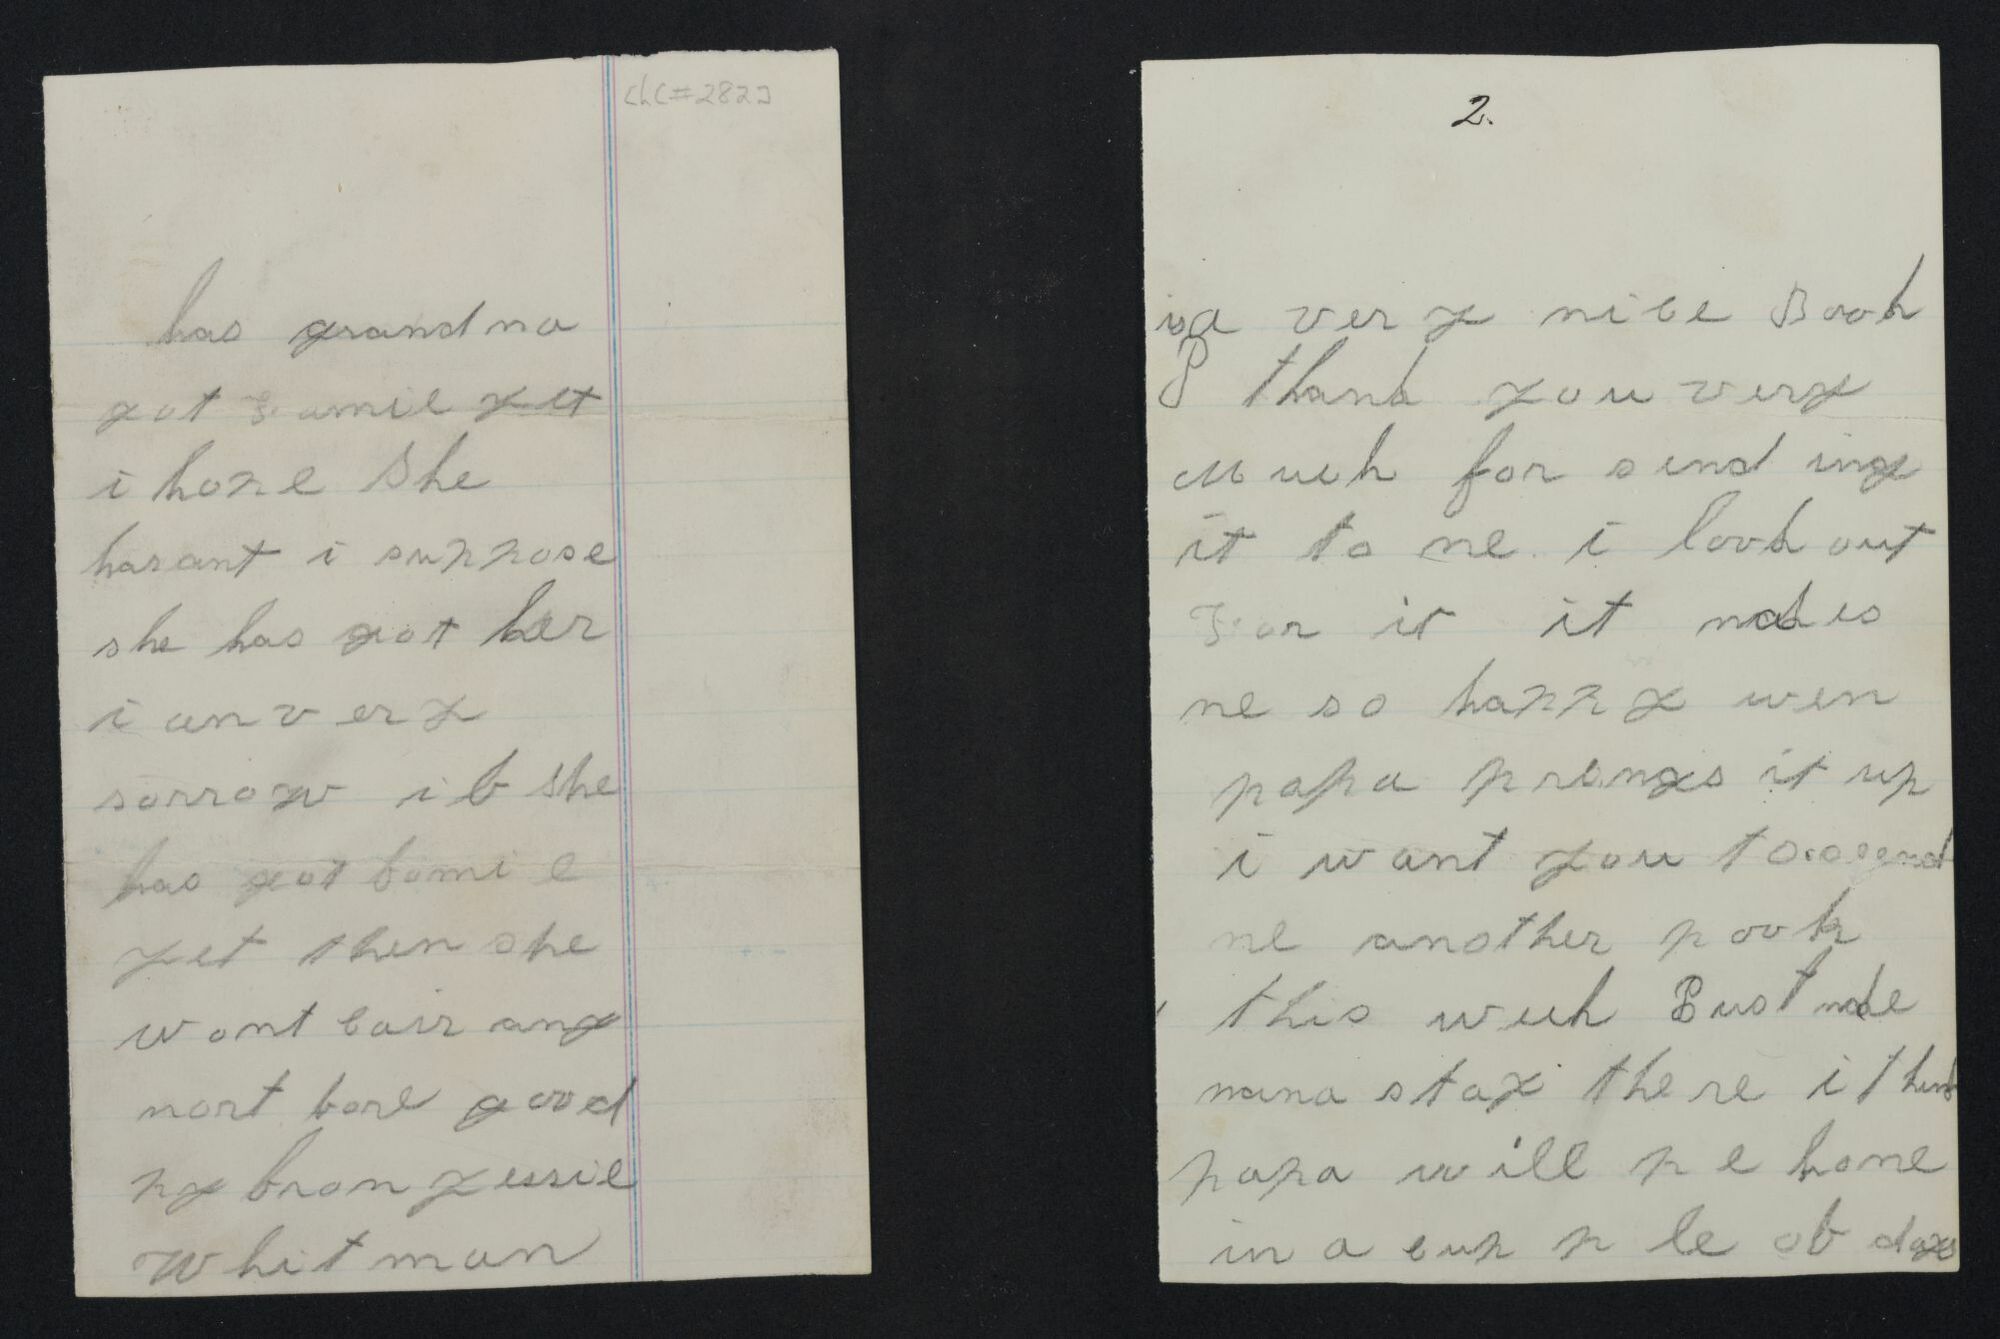 ChC#282
has grandma
got Famie yet
i hope She
hasant i suppose
she has got her
i am very
sorrow if she
has got famie
yet then she
wont cair any
mort fore good
py from Jessie
Whitman
2.
is a very nice Book
I thank you very
Much for sending
it to me i look out
For it it makes
me so happy wen
papa prings it up
i want you to send
me another pook
this week Bust
mama stay there i think
papa will pe home
in a cup p le of days